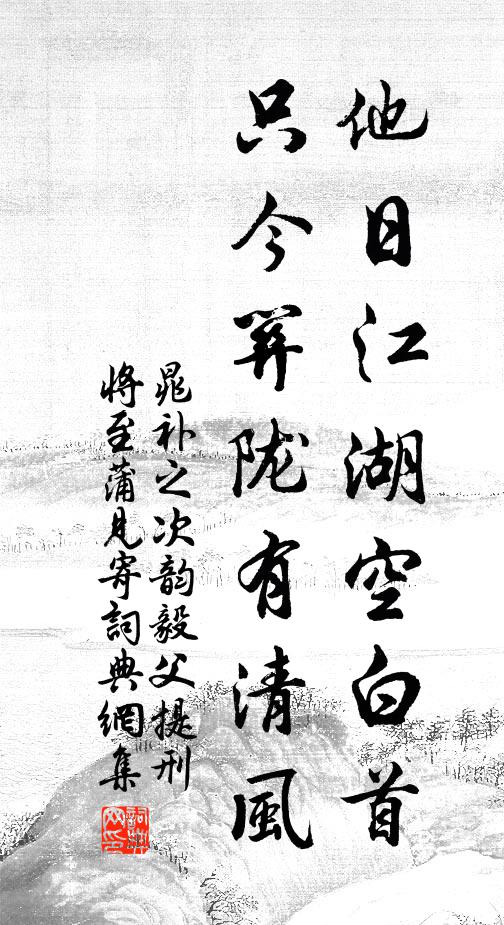 他日江湖空白首
只今關陇有清風
晁补之次韵毅父提刑
將至蒲見寄詞典網集
詞典網印